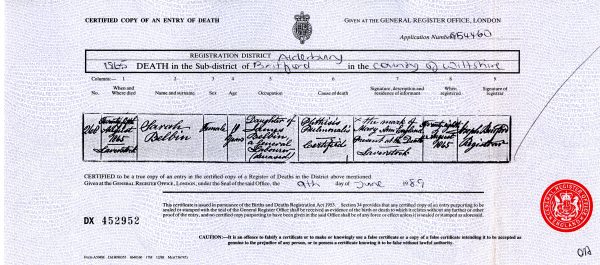 CERTIFIED COPY OF AN ENTRY OF DEATH
GIVEN AT THE GENERAL REGISTER OFFICE, LONDON
Application Number 954460
REGISTRATION DISTRICT Alderbury
1865 DEATH in the Sub-district of Britford in the County of Wiltshire
Columns:— 1 2 3 4 5 6 7 8 9
No. When and Where died Name and surname Sex Age Occupation Cause of death Signature, description and residence of informant When registered Signature of registrar
1865 Laverstock
Sarah Belbin
Female
19 years
Daughter of James Belbin a General Labourer (deceased)
Phthisis Pulmonalis Certified
X The mark of Mary Ann England Present at the Death Laverstock
1865
Registrar
CERTIFIED to be a true copy of an entry in the certified copy of a Register of Deaths in the District above mentioned.
Given at the GENERAL REGISTER OFFICE, LONDON, under the Seal of the said Office, the 9th day of June 1989
DX 452952
This certificate is issued in pursuance of the Births and Deaths Registration Act 1953. Section 34 provides that any certified copy of an entry purporting to be
sealed or stamped with the seal of the General Register Office shall be received as evidence of the birth or death to which it relates without any further or other
proof of the entry, and no certified copy purporting to have been given in the said Office shall be of any force or effect unless it is sealed or stamped as aforesaid.
CAUTION:—It is an offence to falsify a certificate or to make or knowingly use a false certificate or a copy of a false certificate intending it to be accepted as
genuine to the prejudice of any person, or to possess a certificate knowing it to be false without lawful authority.
GENERAL REGISTER OFFICE
ENGLAND